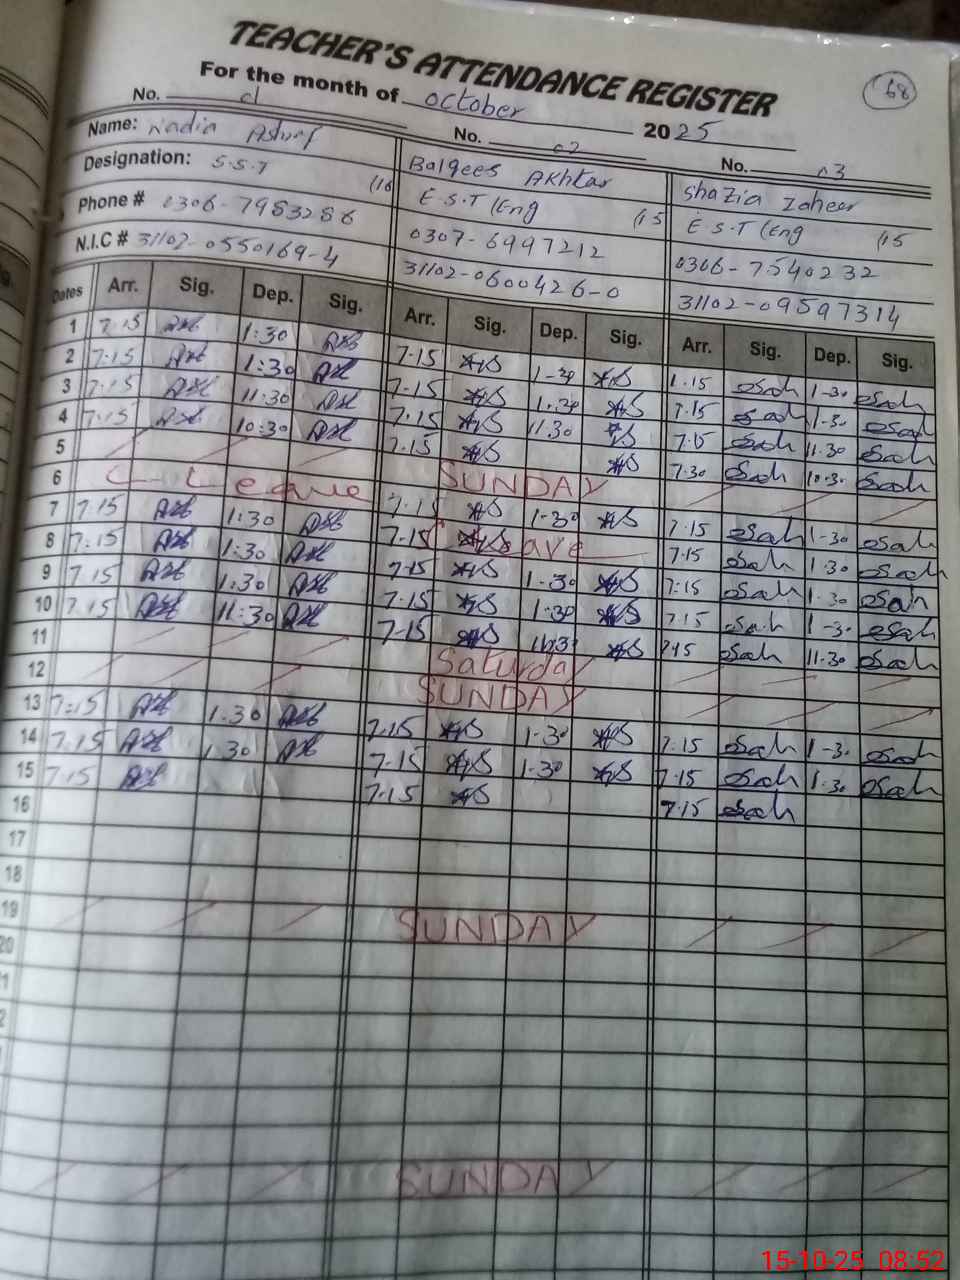 TEACHER'S ATTENDANCE REGISTER
68
For the month of October 2025
No. 01 No. 02 No. 03
Name: Nadia Ashraf Balqees Akhtar Shazia Zaheer
Designation: S.S.T (16 E.S.T (Eng (15 E.S.T (Eng (15
Phone # 0306-7983286 0307-6997212 0306-7540232
N.I.C # 31102-0550169-4 31102-0600426-0 31102-09597314
Dates Arr. Sig. Dep. Sig. Arr. Sig. Dep. Sig. Arr. Sig. Dep. Sig.
1 7:15 1:30 7-15 1-30 7.15 1-30
2 7-15 1:30 7-15 1:30 7.15 1-30
3 7:15 11:30 7-15 11.30 7.15 11.30
4 7:15 10:30 7.15 7.30 10.30
5 SUNDAY
6 C-Leave 7-15 1-30 7.15 1-30
7 7-15 1:30 7-15 Leave 7.15 1.30
8 7:15 1:30 7-15 1-30 7:15 1-30
9 7.15 1:30 7-15 1:30 7.15 1-30
10 7.15 11:30 7-15 11:30 7.15 11.30
11 Saturday
12 SUNDAY
13 7:15 1.30 7.15 1-30 7.15 1-30
14 7.15 1.30 7-15 1-30 7.15 1.30
15 7.15 7.15 7.15
16
17
18
19 SUNDAY
20
SUNDAY
15-10-25 08:52